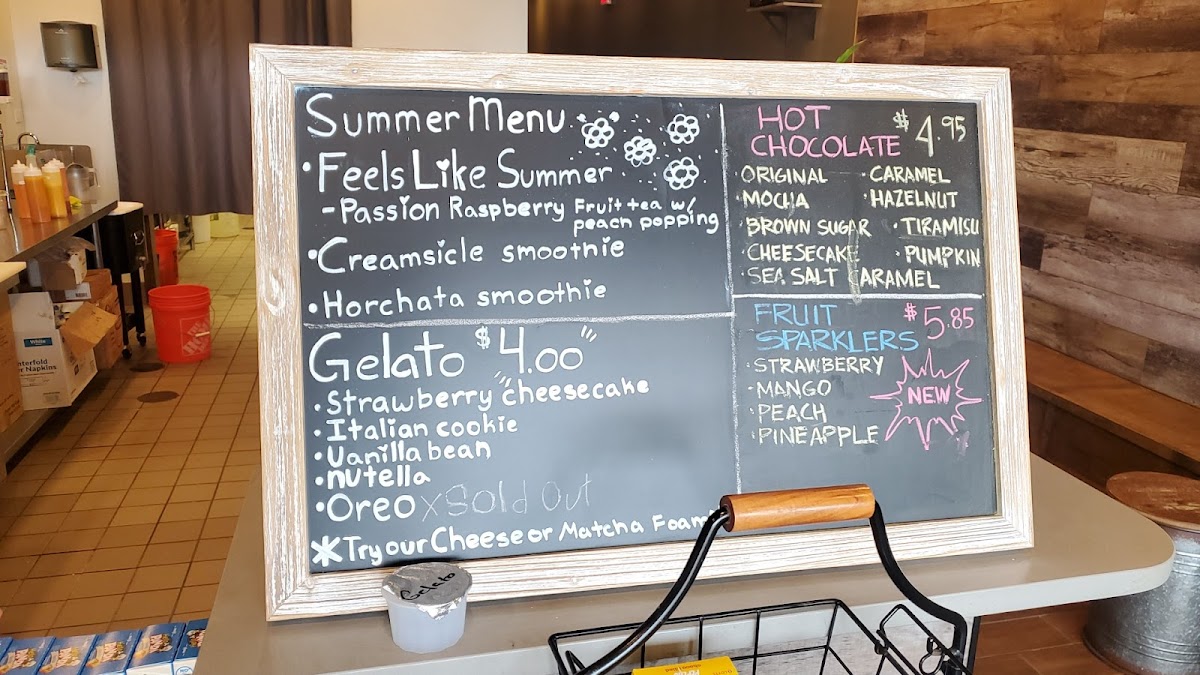 Summer Menu
• Feels Like Summer
- Passion Raspberry Fruit tea w/
peach popping
• Creamsicle smoothie
• Horchata smoothie
Gelato $4.00
• Strawberry cheesecake
• Italian cookie
• Vanilla bean
• nutella
• Oreo x Sold Out
* Try our Cheese or Matcha Foam
HOT
CHOCOLATE $4.95
• ORIGINAL • CARAMEL
• MOCHA • HAZELNUT
• BROWN SUGAR • TIRAMISU
• CHEESECAKE • PUMPKIN
• SEA SALT CARAMEL
FRUIT
SPARKLERS $5.85
• STRAWBERRY
• MANGO
• PEACH
• PINEAPPLE
NEW
Gelato
White
Napkins